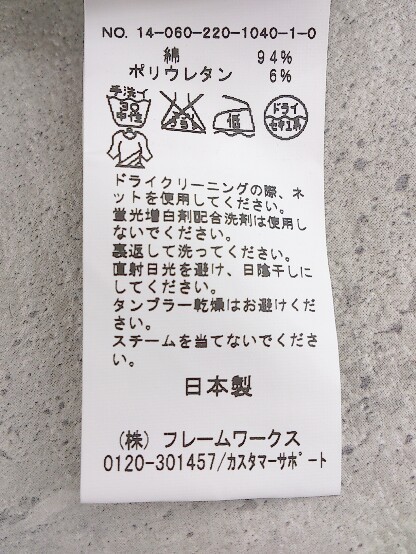 NO. 14-060-220-1040-1-0
綿 94%
ポリウレタン 6%
手洗イ
30
中性
エンソサラシ
低
ドライ
セキユ系
ドライクリーニングの際、ネ
ットを使用してください。
蛍光増白剤配合洗剤は使用し
ないでください。
裏返して洗ってください。
直射日光を避け、日陰干しに
してください。
タンブラー乾燥はお避けくだ
さい。
スチームを当てないでくださ
い。
日本製
（株）フレームワークス
0120-301457/カスタマーサポート